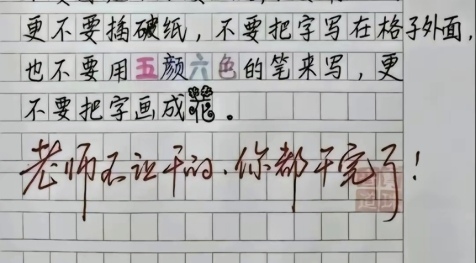 更不要捅破纸，不要把字写在格子外面，
也不要用五颜六色的笔来写，更
不要把字画成花。
老师不让干的，你都干完了！